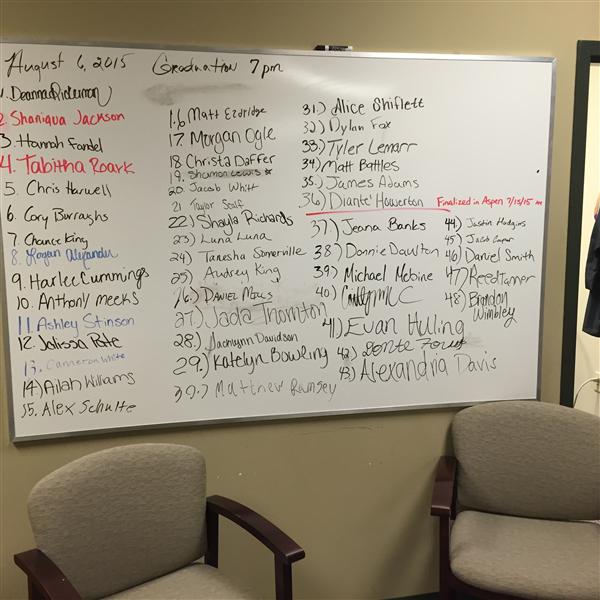 August 6, 2015 Graduation 7pm
1. Deanna Rideman
2. Shaniqua Jackson
3. Hannah Fandel
4. Tabitha Roark
5. Chris Harwell
6. Cory Burraghs
7. Chance King
8. Logan Alexander
9. Harlee Cummings
10. Anthony Meeks
11. Ashley Stinson
12. Jalissa Pate
13. Cameron White
14) Ailah Williams
15. Alex Schulte
16. Matt Ezdridge
17. Morgan Ogle
18 Christa Daffer
19. Shannon Lewis
20 Jacob Whitt
21 Taylor Scalf
22.) Shayla Richards
23) Luna Luna
24) Tanesha Somerville
25) Audrey King
26.) Daniel
27) Jada Thornton
28.) Jachlynn Davidson
29.) Katelyn Bowling
30.) Matthew Ramsey
31.) Alice Shiflett
32.) Dylan Fox
33.) Tyler Lemarr
34) Matt Battles
35.) James Adams
36) Diante' Howerton Finalized in Aspen 7/15/15
37.) Jeana Banks
38.) Donnie Dawlton
39.) Michael McBine
40.)
41) Evan Huling
42.)
43) Alexandria Davis
44.) Justin Hudgins
45.) Jacob
46) Daniel Smith
47) Reed Tanner
48) Brandon
Wimbley